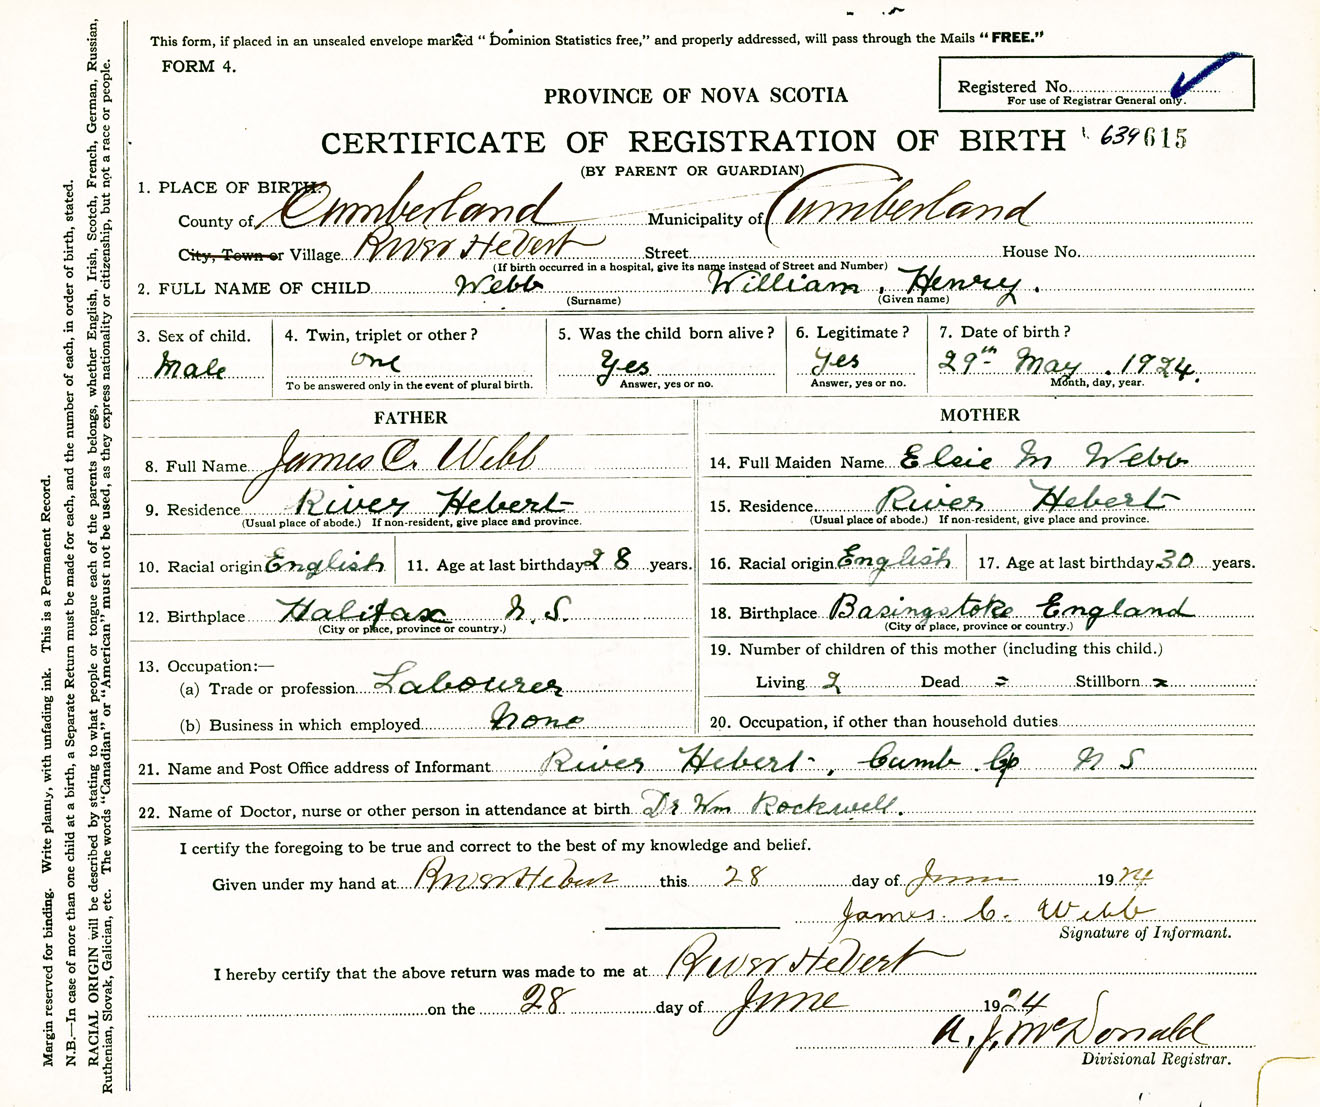 This form, if placed in an unsealed envelope marked "Dominion Statistics free," and properly addressed, will pass through the Mails "FREE."
FORM 4.
Registered No.
For use of Registrar General only.
PROVINCE OF NOVA SCOTIA
CERTIFICATE OF REGISTRATION OF BIRTH 639 615
(BY PARENT OR GUARDIAN)
1. PLACE OF BIRTH:
County of Cumberland Municipality of Cumberland
City, Town or Village River Hebert Street House No.
(If birth occurred in a hospital, give its name instead of Street and Number)
2. FULL NAME OF CHILD Webb William, Henry.
(Surname) (Given name)
3. Sex of child. 4. Twin, triplet or other? 5. Was the child born alive? 6. Legitimate? 7. Date of birth?
Male one Yes Yes 29th May. 1924.
To be answered only in the event of plural birth. Answer, yes or no. Answer, yes or no. Month, day, year.
FATHER
8. Full Name James C. Webb
9. Residence River Hebert
(Usual place of abode.) If non-resident, give place and province.
10. Racial origin English 11. Age at last birthday 28 years.
12. Birthplace Halifax N.S.
(City or place, province or country.)
13. Occupation:—
(a) Trade or profession Labourer
(b) Business in which employed None
MOTHER
14. Full Maiden Name Elsie M Webb
15. Residence River Hebert
(Usual place of abode.) If non-resident, give place and province.
16. Racial origin English 17. Age at last birthday 30 years.
18. Birthplace Basingstoke England
(City or place, province or country.)
19. Number of children of this mother (including this child.)
Living 2 Dead = Stillborn x
20. Occupation, if other than household duties
21. Name and Post Office address of Informant River Hebert, Cumb Co N S
22. Name of Doctor, nurse or other person in attendance at birth Dr Wm Rockwell.
I certify the foregoing to be true and correct to the best of my knowledge and belief.
Given under my hand at River Hebert this 28 day of June 1924
James. C. Webb
Signature of Informant.
I hereby certify that the above return was made to me at River Hebert
on the 28 day of June 1924
A. J. McDonald
Divisional Registrar.
Margin reserved for binding. Write plainly, with unfading ink. This is a Permanent Record.
N.B.—In case of more than one child at a birth, a Separate Return must be made for each, and the number of each, in order of birth, stated.
RACIAL ORIGIN will be described by stating to what people or tongue each of the parents belongs, whether English, Irish, Scotch, French, German, Russian,
Ruthenian, Slovak, Galician, etc. The words "Canadian" or "American" must not be used, as they express nationality or citizenship, but not a race or people.